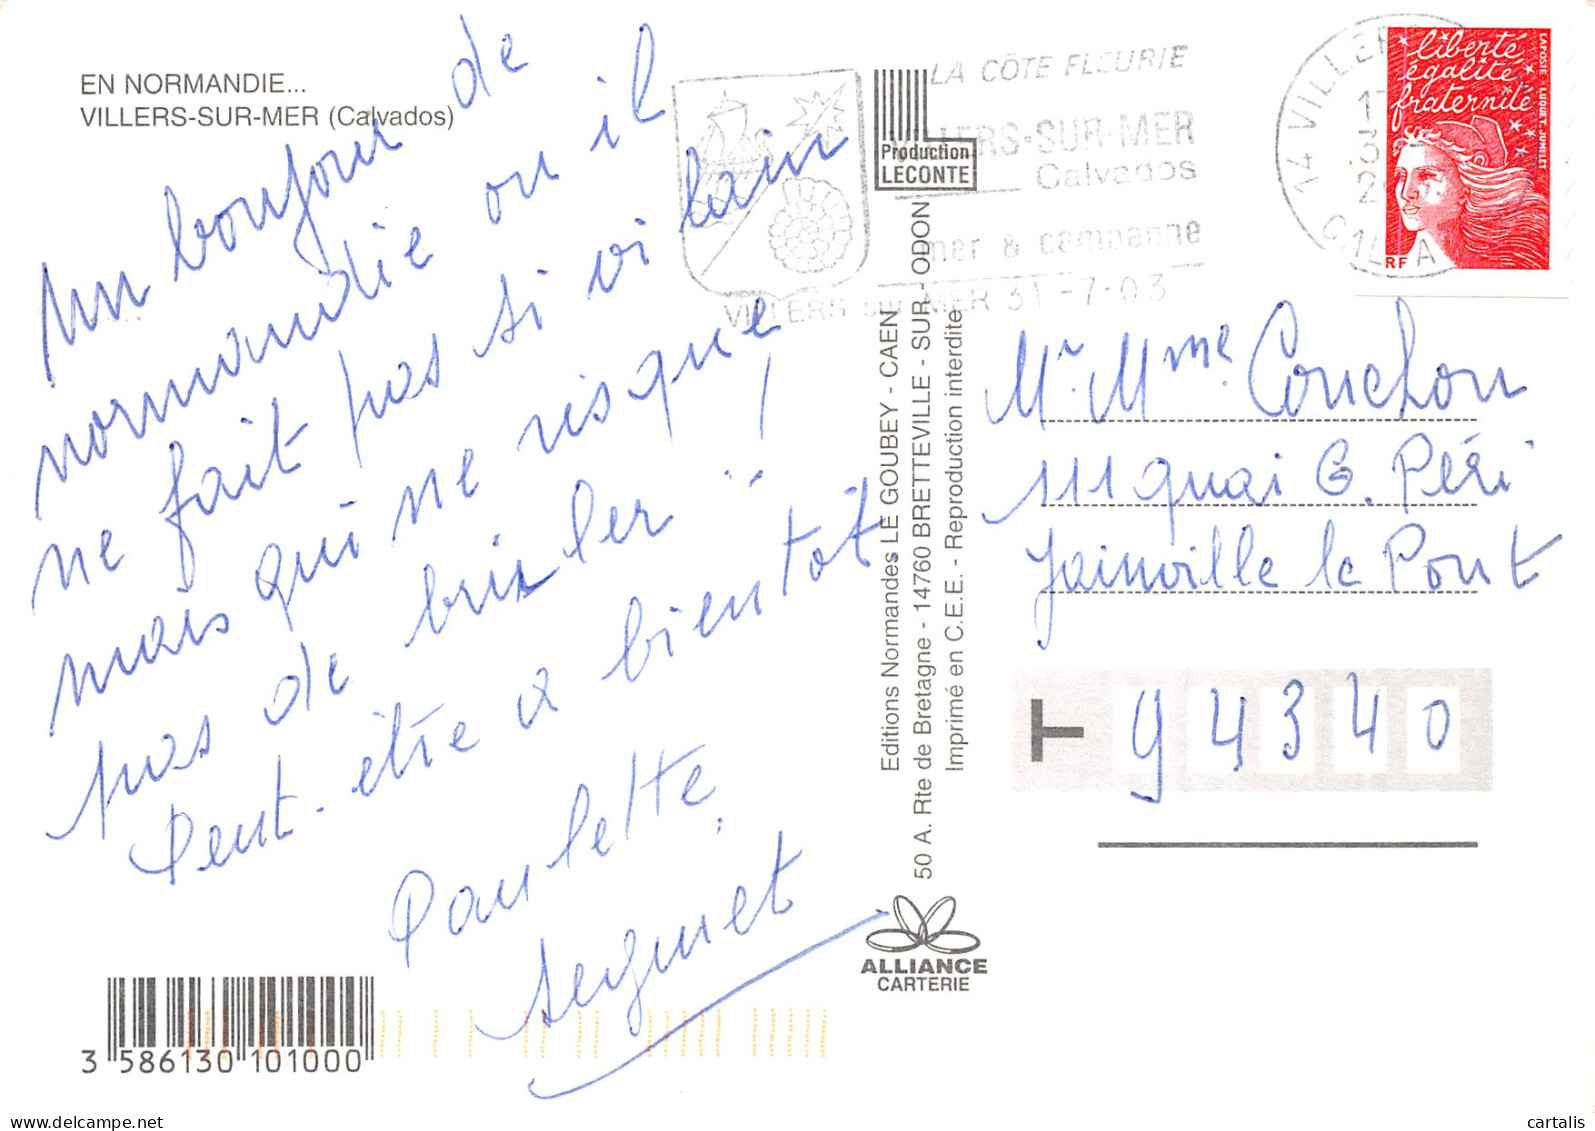 EN NORMANDIE...
VILLERS-SUR-MER (Calvados)
un bonjour de
normandie ou il
ne fait pas si vilain
mais qui ne risque
pas de briller "!
Peut-être a bientot
Paulette
Seignet
3 586130 101000
LA CÔTE FLEURIE
VILLERS-SUR-MER
Calvados
mer & campagne
VILLERS SUR MER 31-7-03
Production
LECONTE
Editions Normandes LE GOUBEY - CAEN
50 A. Rte de Bretagne - 14760 BRETTEVILLE - SUR - ODON
Imprimé en C.E.E. - Reproduction interdite
ALLIANCE
CARTERIE
14 VILLER
CALVA
liberté
égalité
fraternité
LA POSTE LUQUET-JUMELET
RF
Mr. Mme Couchon
111 quai G. Péri
Joinville le Pont
T 94340
www.delcampe.net
cartalis